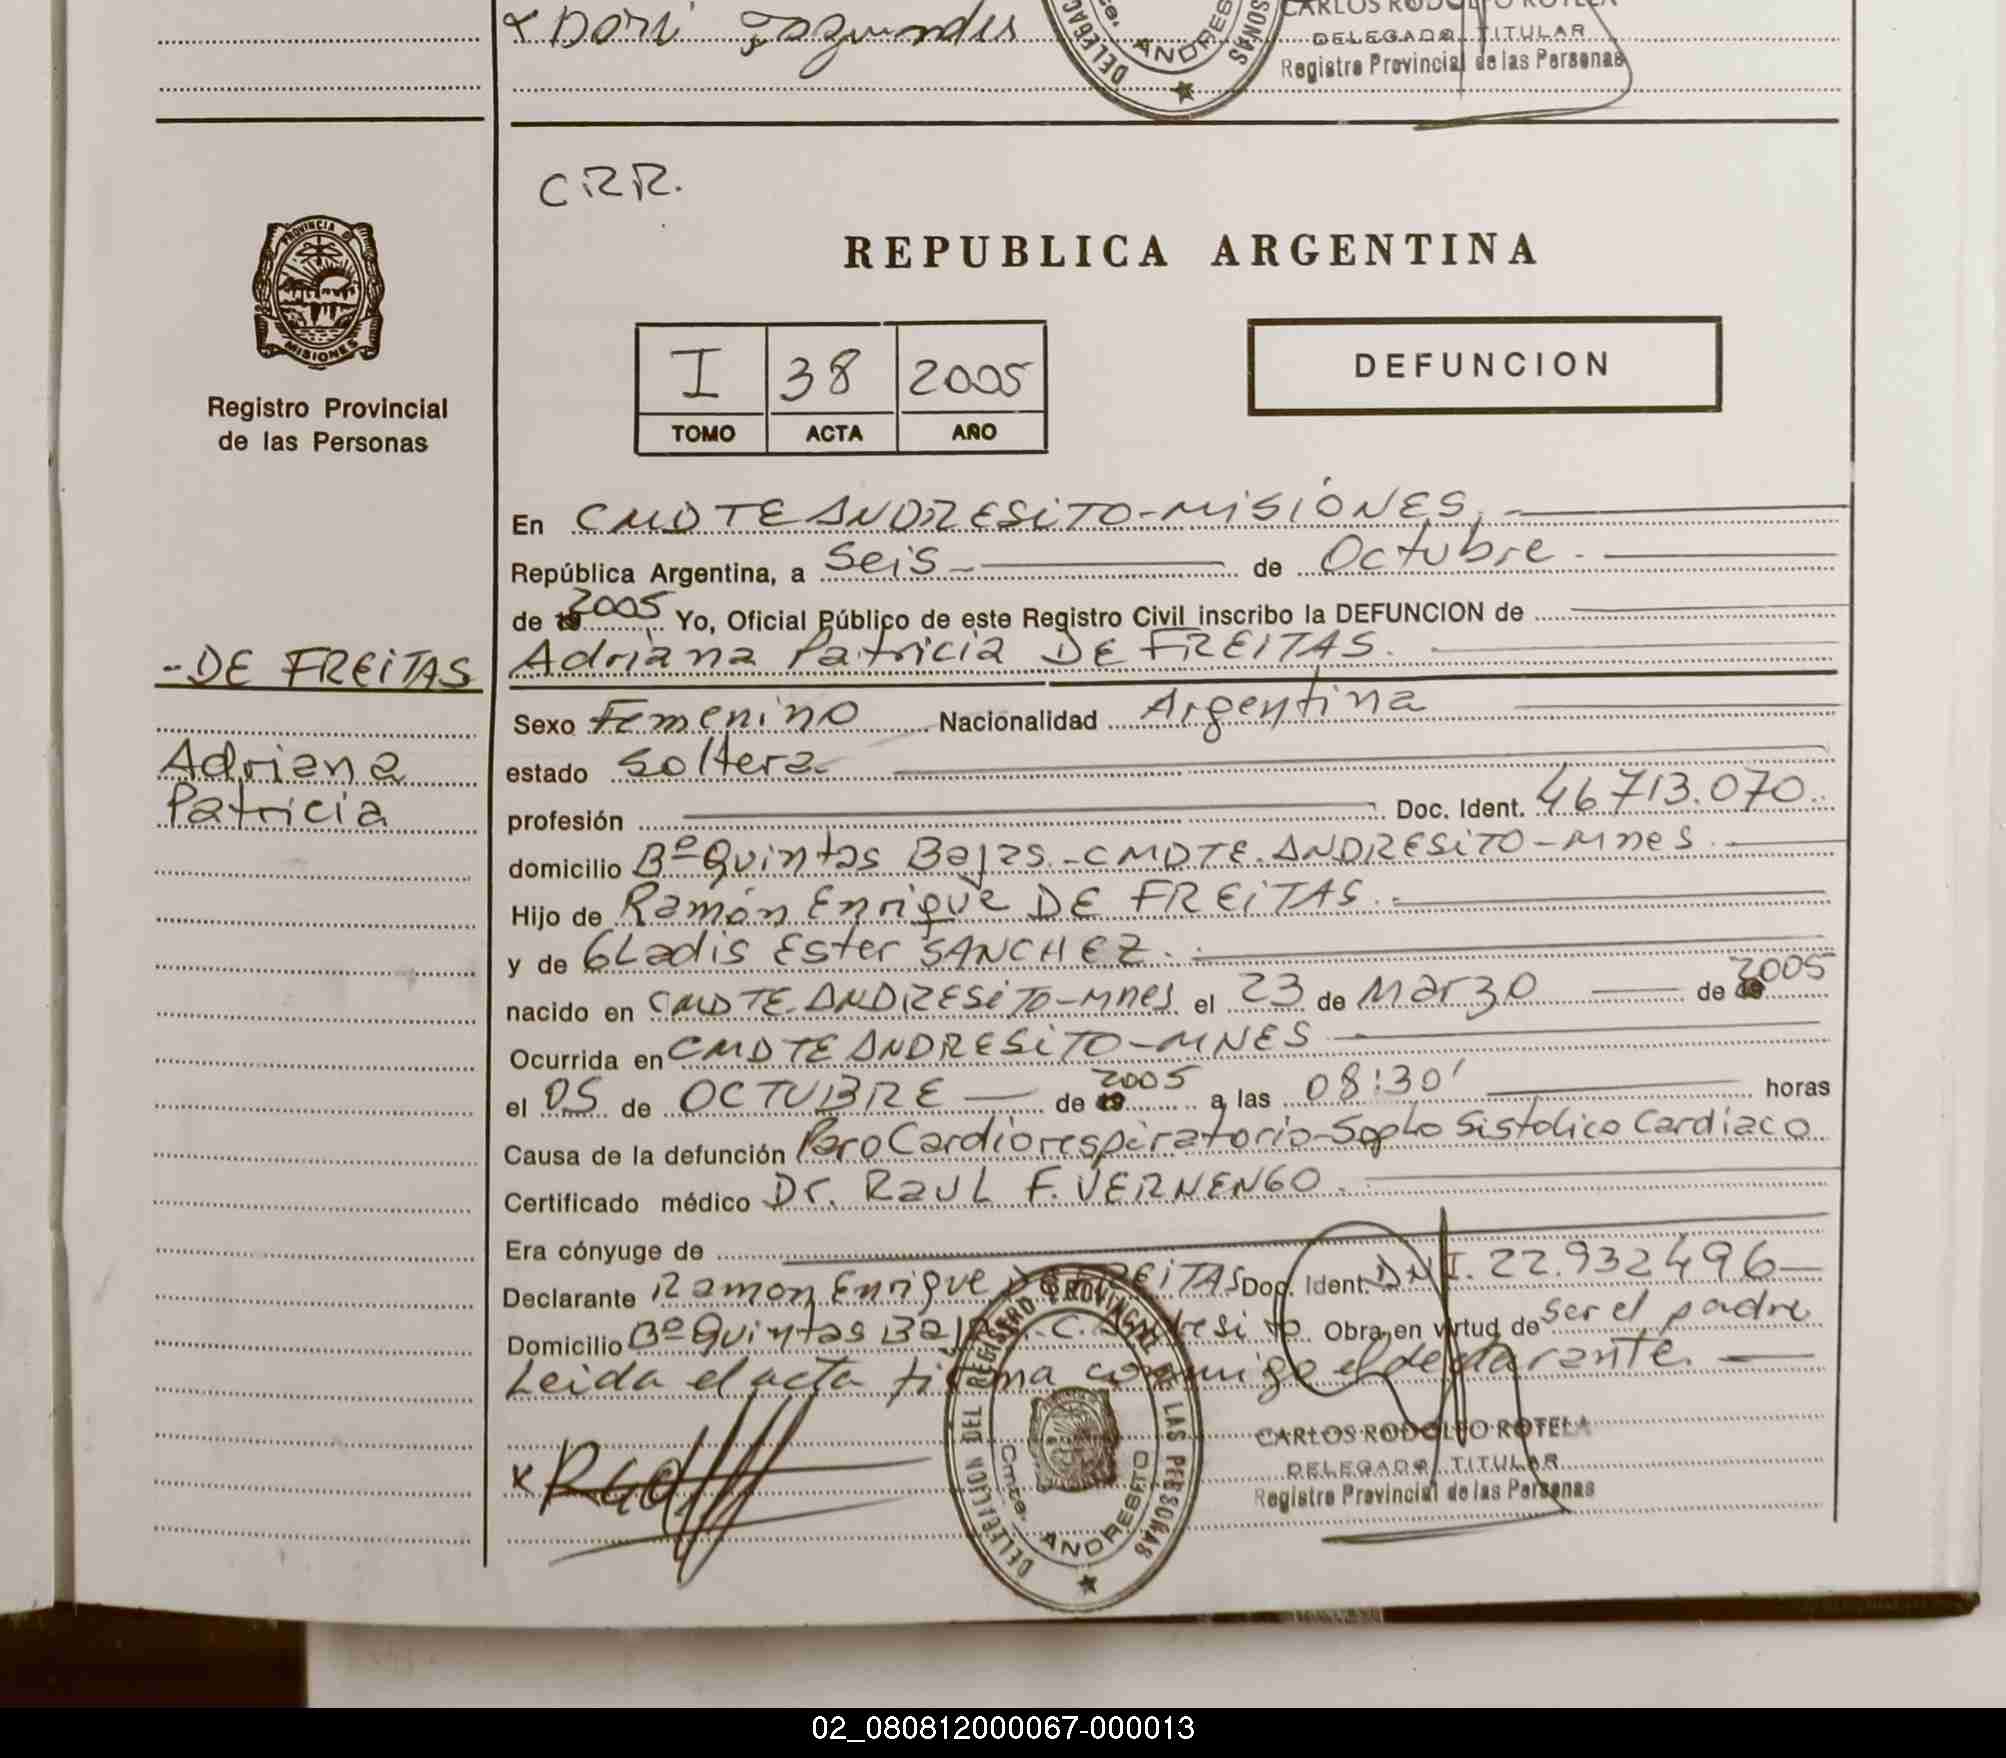 x Dori
CARLOS RODOLFO ROTELA
DELEGADO TITULAR
Registro Provincial de las Personas
ANDRES
CRR.
PROVINCIA D MISIONES
REPUBLICA ARGENTINA
I 38 2005
TOMO ACTA AÑO
DEFUNCION
Registro Provincial
de las Personas
En CMDTE ANDRESITO-MISIONES.-
República Argentina, a Seis- de Octubre.
de 19 2005 Yo, Oficial Público de este Registro Civil inscribo la DEFUNCION de
-DE FREITAS
Adriana Patricia DE FREITAS.
Sexo Femenino Nacionalidad Argentina
Adriana
Patricia
estado Soltera
profesión Doc. Ident. 46713.070.
domicilio Bº Quintas Bajas.-CMDTE.ANDRESITO-Mnes.
Hijo de Ramón Enrique DE FREITAS.
y de GLadis Ester SANCHEZ.
nacido en CMDTE.ANDRESITO-Mnes. el 23 de Marzo de 19 2005
Ocurrida en CMDTE ANDRESITO-MNES
el 05 de OCTUBRE de 19 2005 a las 08:30' horas
Causa de la defunción Paro Cardiorespiratorio-Soplo Sistolico Cardiaco
Certificado médico Dr. RaUL F. VERNENGO.
Era cónyuge de
Declarante Ramon Enrique DE FREITAS Doc. Ident. DNI. 22.932496-
Domicilio Bº Quintas Bajas. C. Andresito Obra en virtud de ser el padre
Leida el acta firma conmigo el declarante.-
DELEGACION DEL REGISTRO PROVINCIAL DE LAS PERSONAS
Cmte. ANDRESITO
CARLOS RODOLFO ROTELA
DELEGADO TITULAR
Registro Provincial de las Personas
02_080812000067-000013